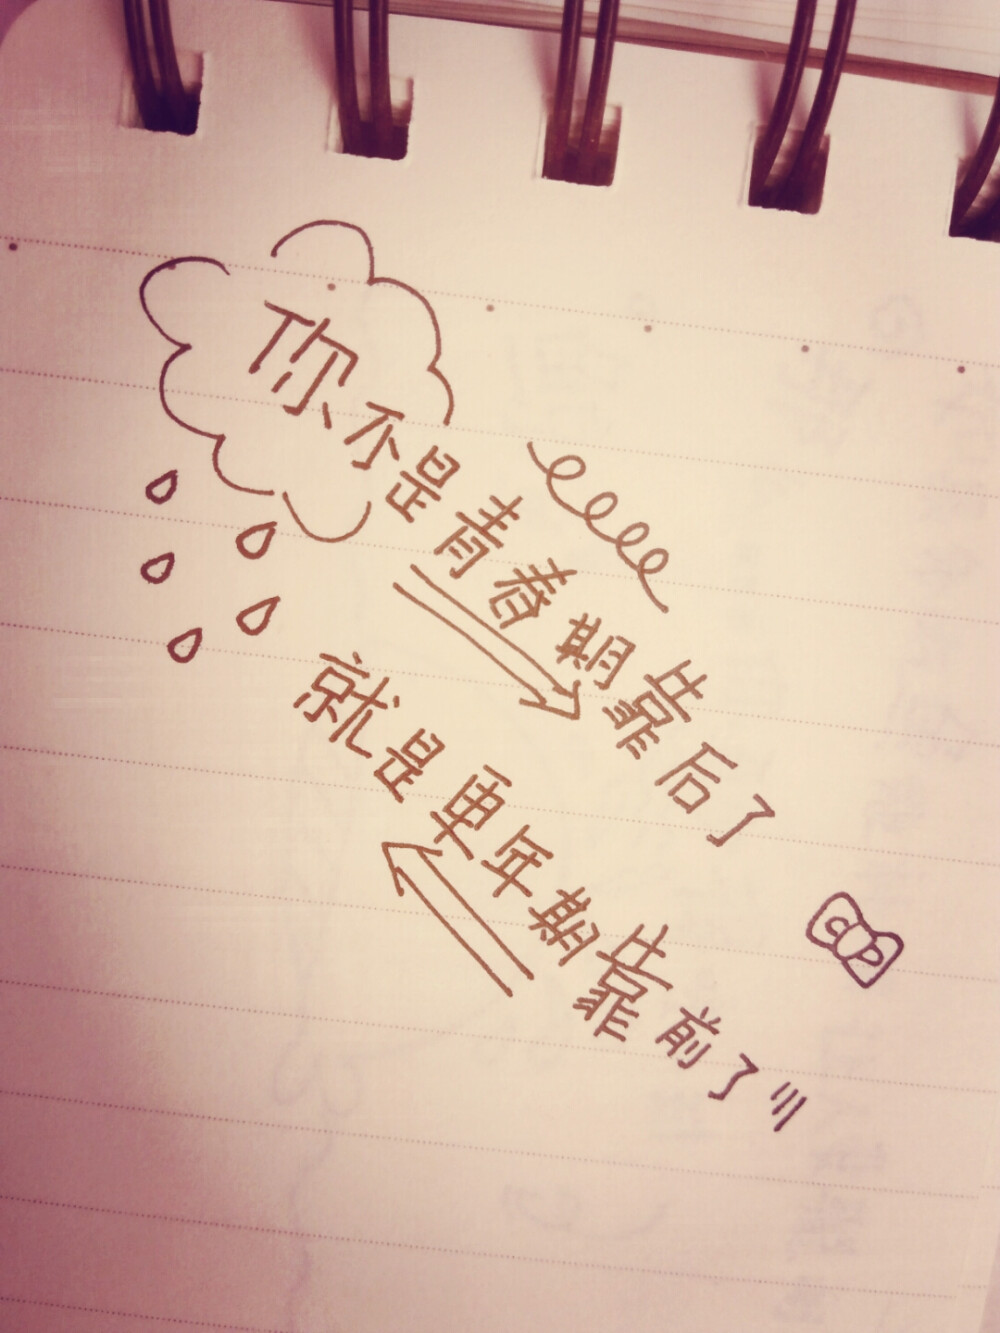 你不是青春期靠后了
就是更年期靠前了